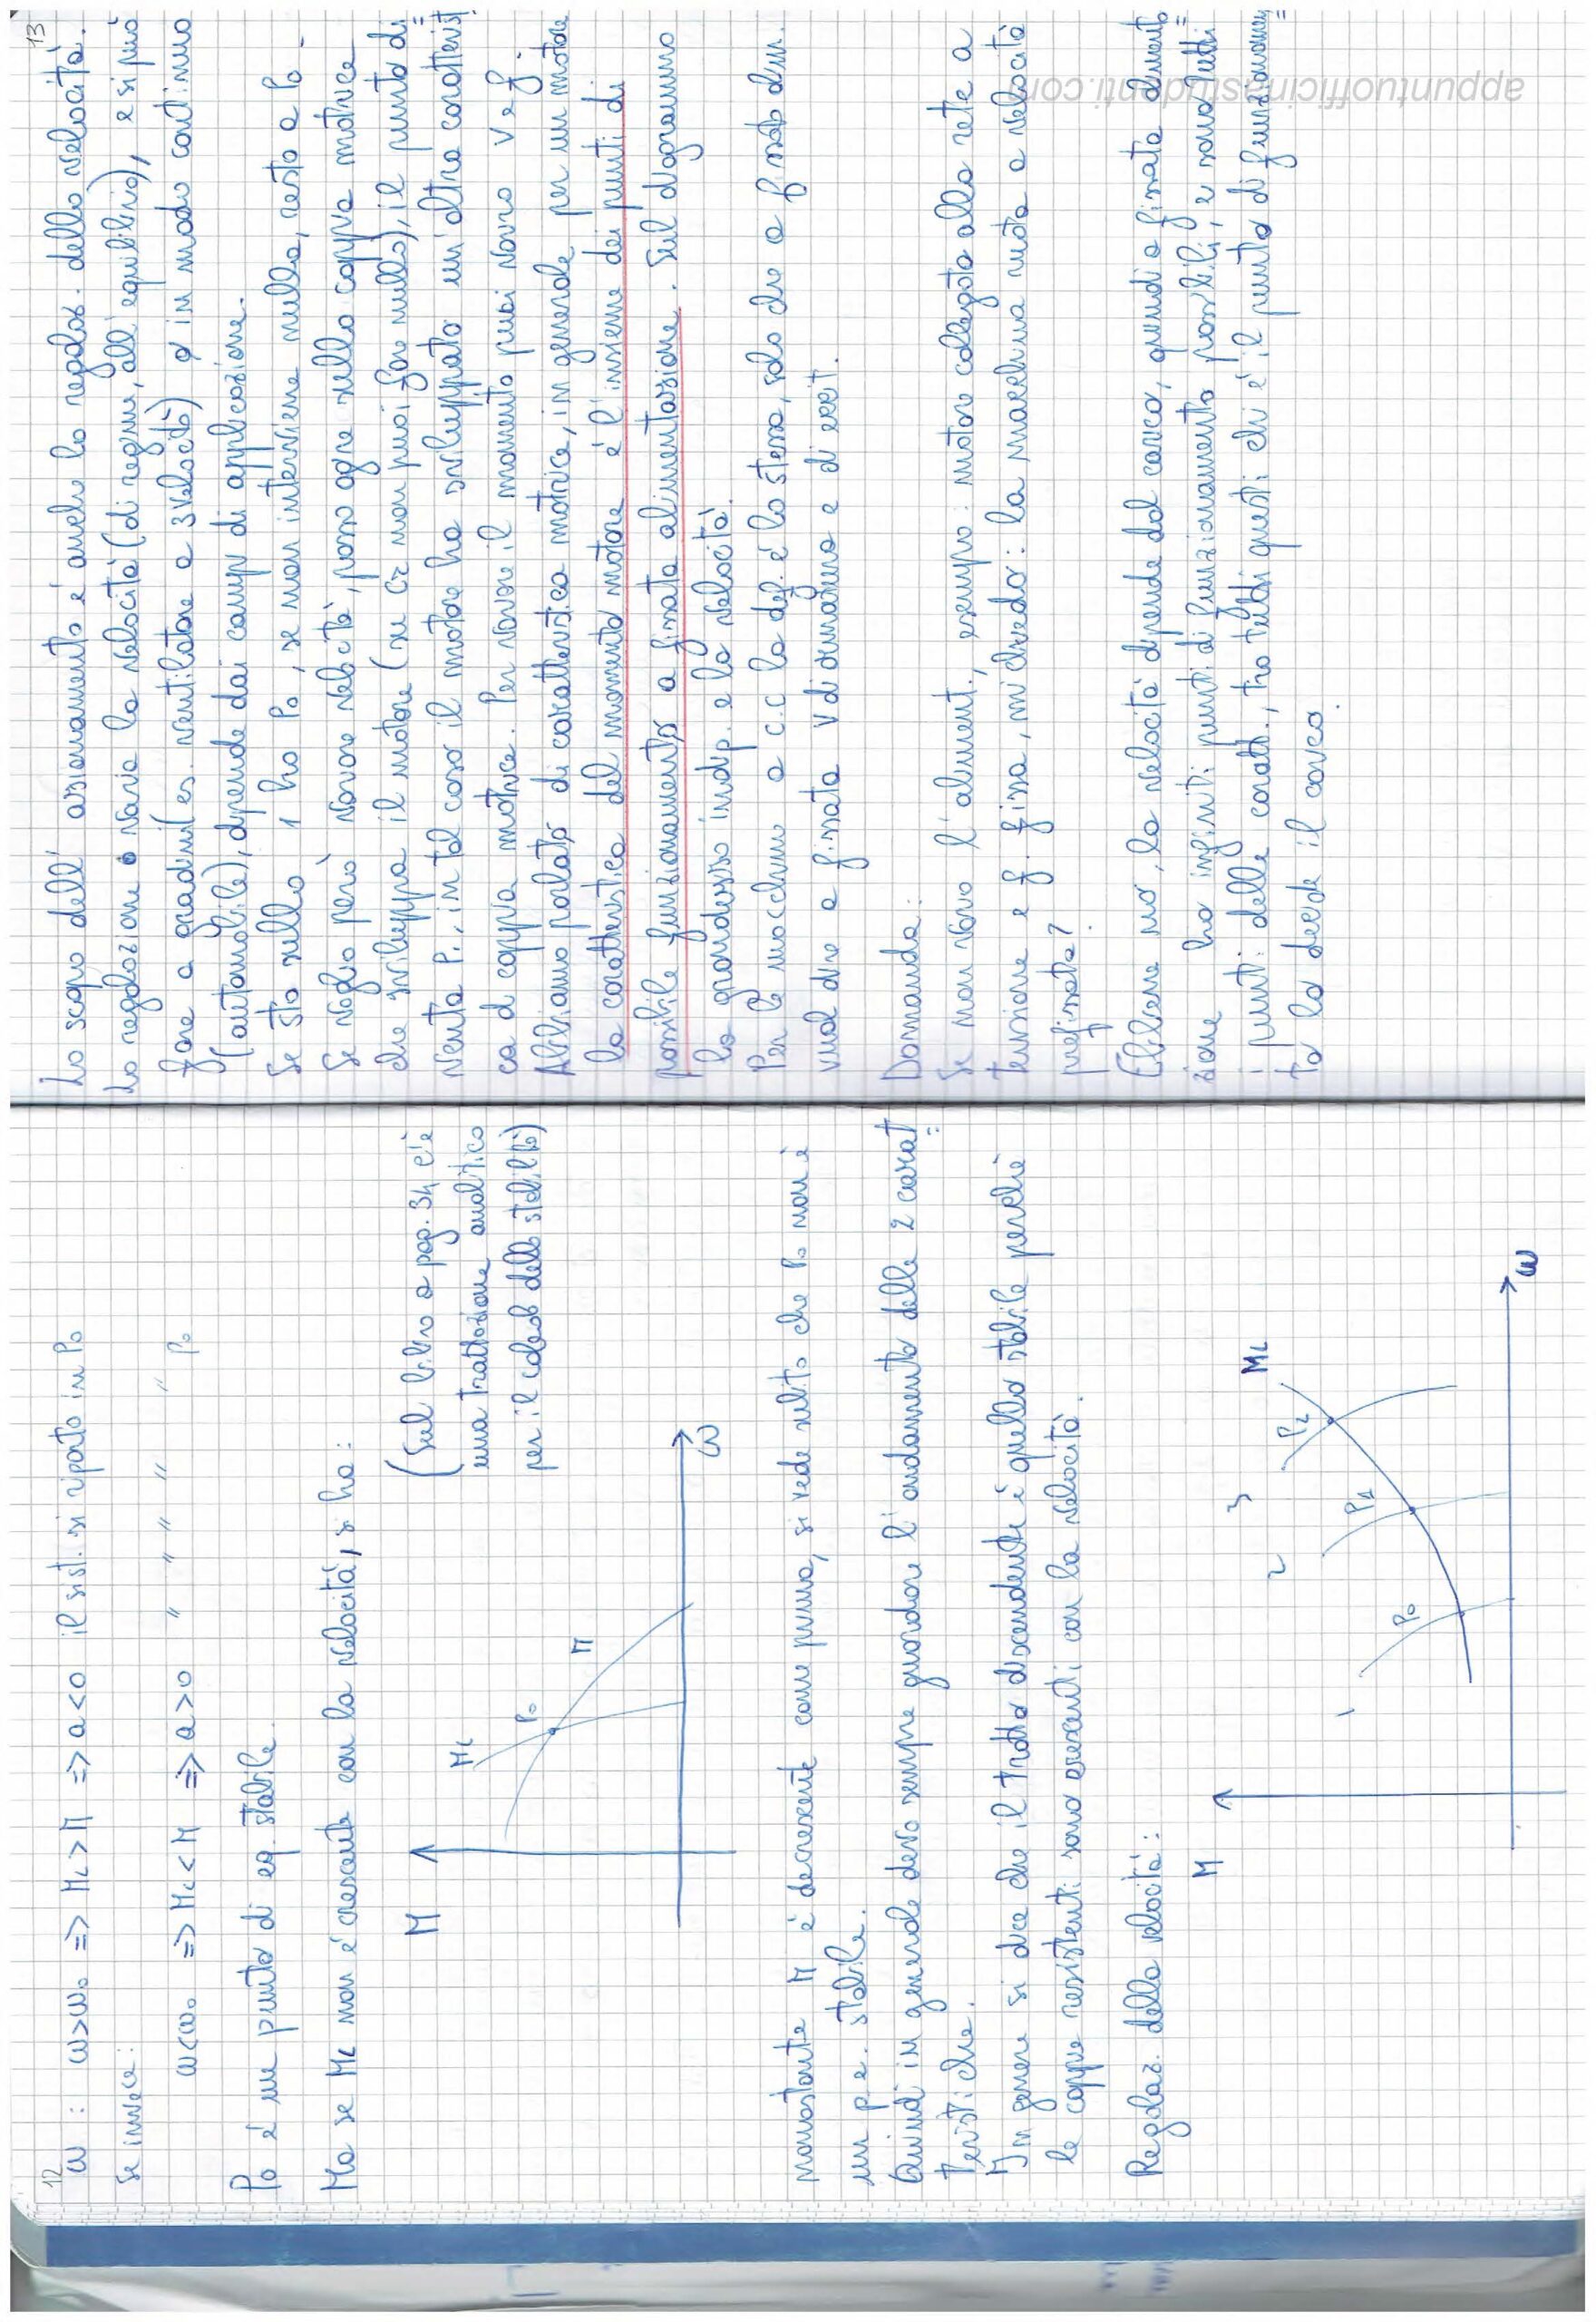 12
ω : ω>ω₀ => Mc > M => a<0 il sist. si riporta in P₀
Se invece:
ω<ω₀ => Mc < M => a>0 " " " " " P₀
P₀ è un punto di eq. stabile.
Ma se Mc non è crescente con la velocità, si ha:
(Sul libro a pag. 34 c'è
una trattazione analitica
per il calcolo della stabilità)
M
Mc
P₀
M
ω
nonostante M è decrescente come prima, si vede subito che P₀ non è
un p.e. stabile.
Quindi in generale devo sempre guardare l'andamento delle 2 carat=
teristiche.
In genere si dice che il tratto discendente è quello stabile perchè
le coppie resistenti sono crescenti con la velocità.
Regolaz. della velocità:
M
1
2
3
P₀
P₁
P₂
Mc
ω
13
Lo scopo dell'azionamento è anche la regolaz. della velocità.
La regolazione varia la velocità (di regime, all'equilibrio), e si può
fare a gradini (es. ventilatore a 3 velocità) o in modo continuo
(automobile), dipende dai campi di applicazione.
Se sto sulla 1 ho P₀, se non interviene nulla, resto a P₀.
Se voglio però variare velocità, posso agire sulla coppia motrice
che sviluppa il motore (su Cr non puoi fare nulla), il punto di=
venta P₁, in tal caso il motore ha sviluppato un'altra caratteristi=
ca di coppia motrice. Per variare il momento puoi variare V e f.
Abbiamo parlato di caratteristica motrice, in generale per un motore
la caratteristica del momento motore è l'insieme dei punti di
possibile funzionamento a fissata alimentazione. Sul diagramma
la grandezza indip. è la velocità.
Per le macchine a c.c la def. è la stessa, solo che a fissata alim.
vuol dire a fissata V di armatura e di eccit.
Domanda:
Se non vario l'aliment., esempio: motore collegato alla rete a
tensione e f. fissa, mi chiedo: la macchina ruota a velocità
prefissata?
Ebbene no, la velocità dipende dal carico, quindi a fissata aliment=
zione ho infiniti punti di funzionamento possibili, e sono tutti=
i punti della caratt., tra tutti questi chi è il punto di funzionamen=
to lo decide il carico.
appuntiofficinastudenti.com